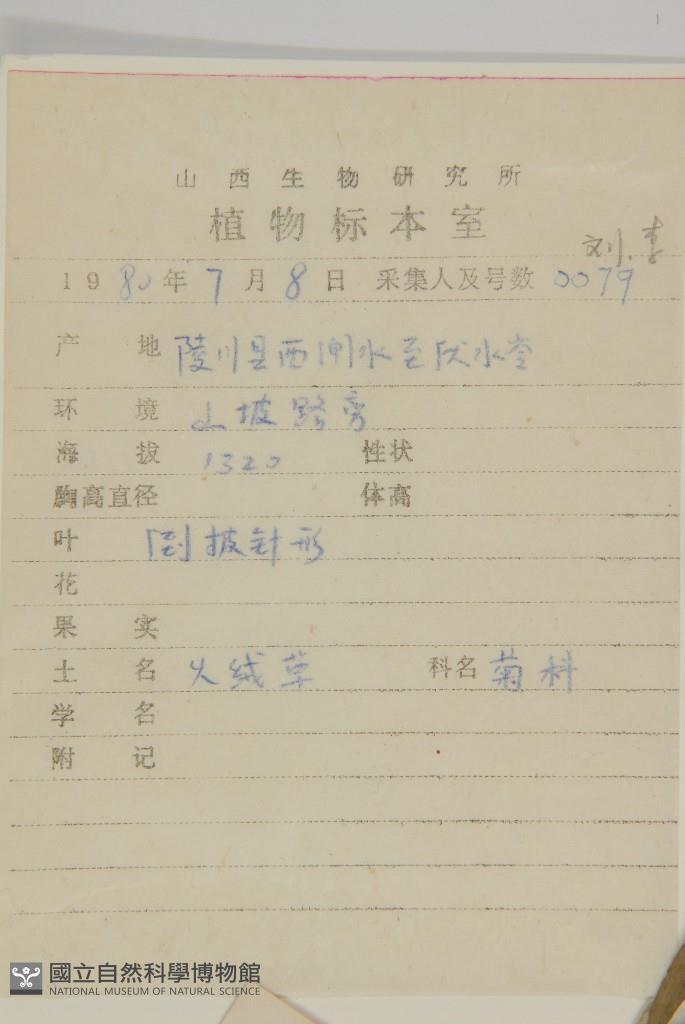 山西生物研究所
植物标本室
刘.李
1980年7月8日 采集人及号数 0079
产地 陵川县西闸水至伏水
环境 山坡路旁
海拔 1320 性状
胸高直径 体高
叶 倒披针形
花
果实
土名 火绒草 科名 菊科
学名
附记
國立自然科學博物館
NATIONAL MUSEUM OF NATURAL SCIENCE